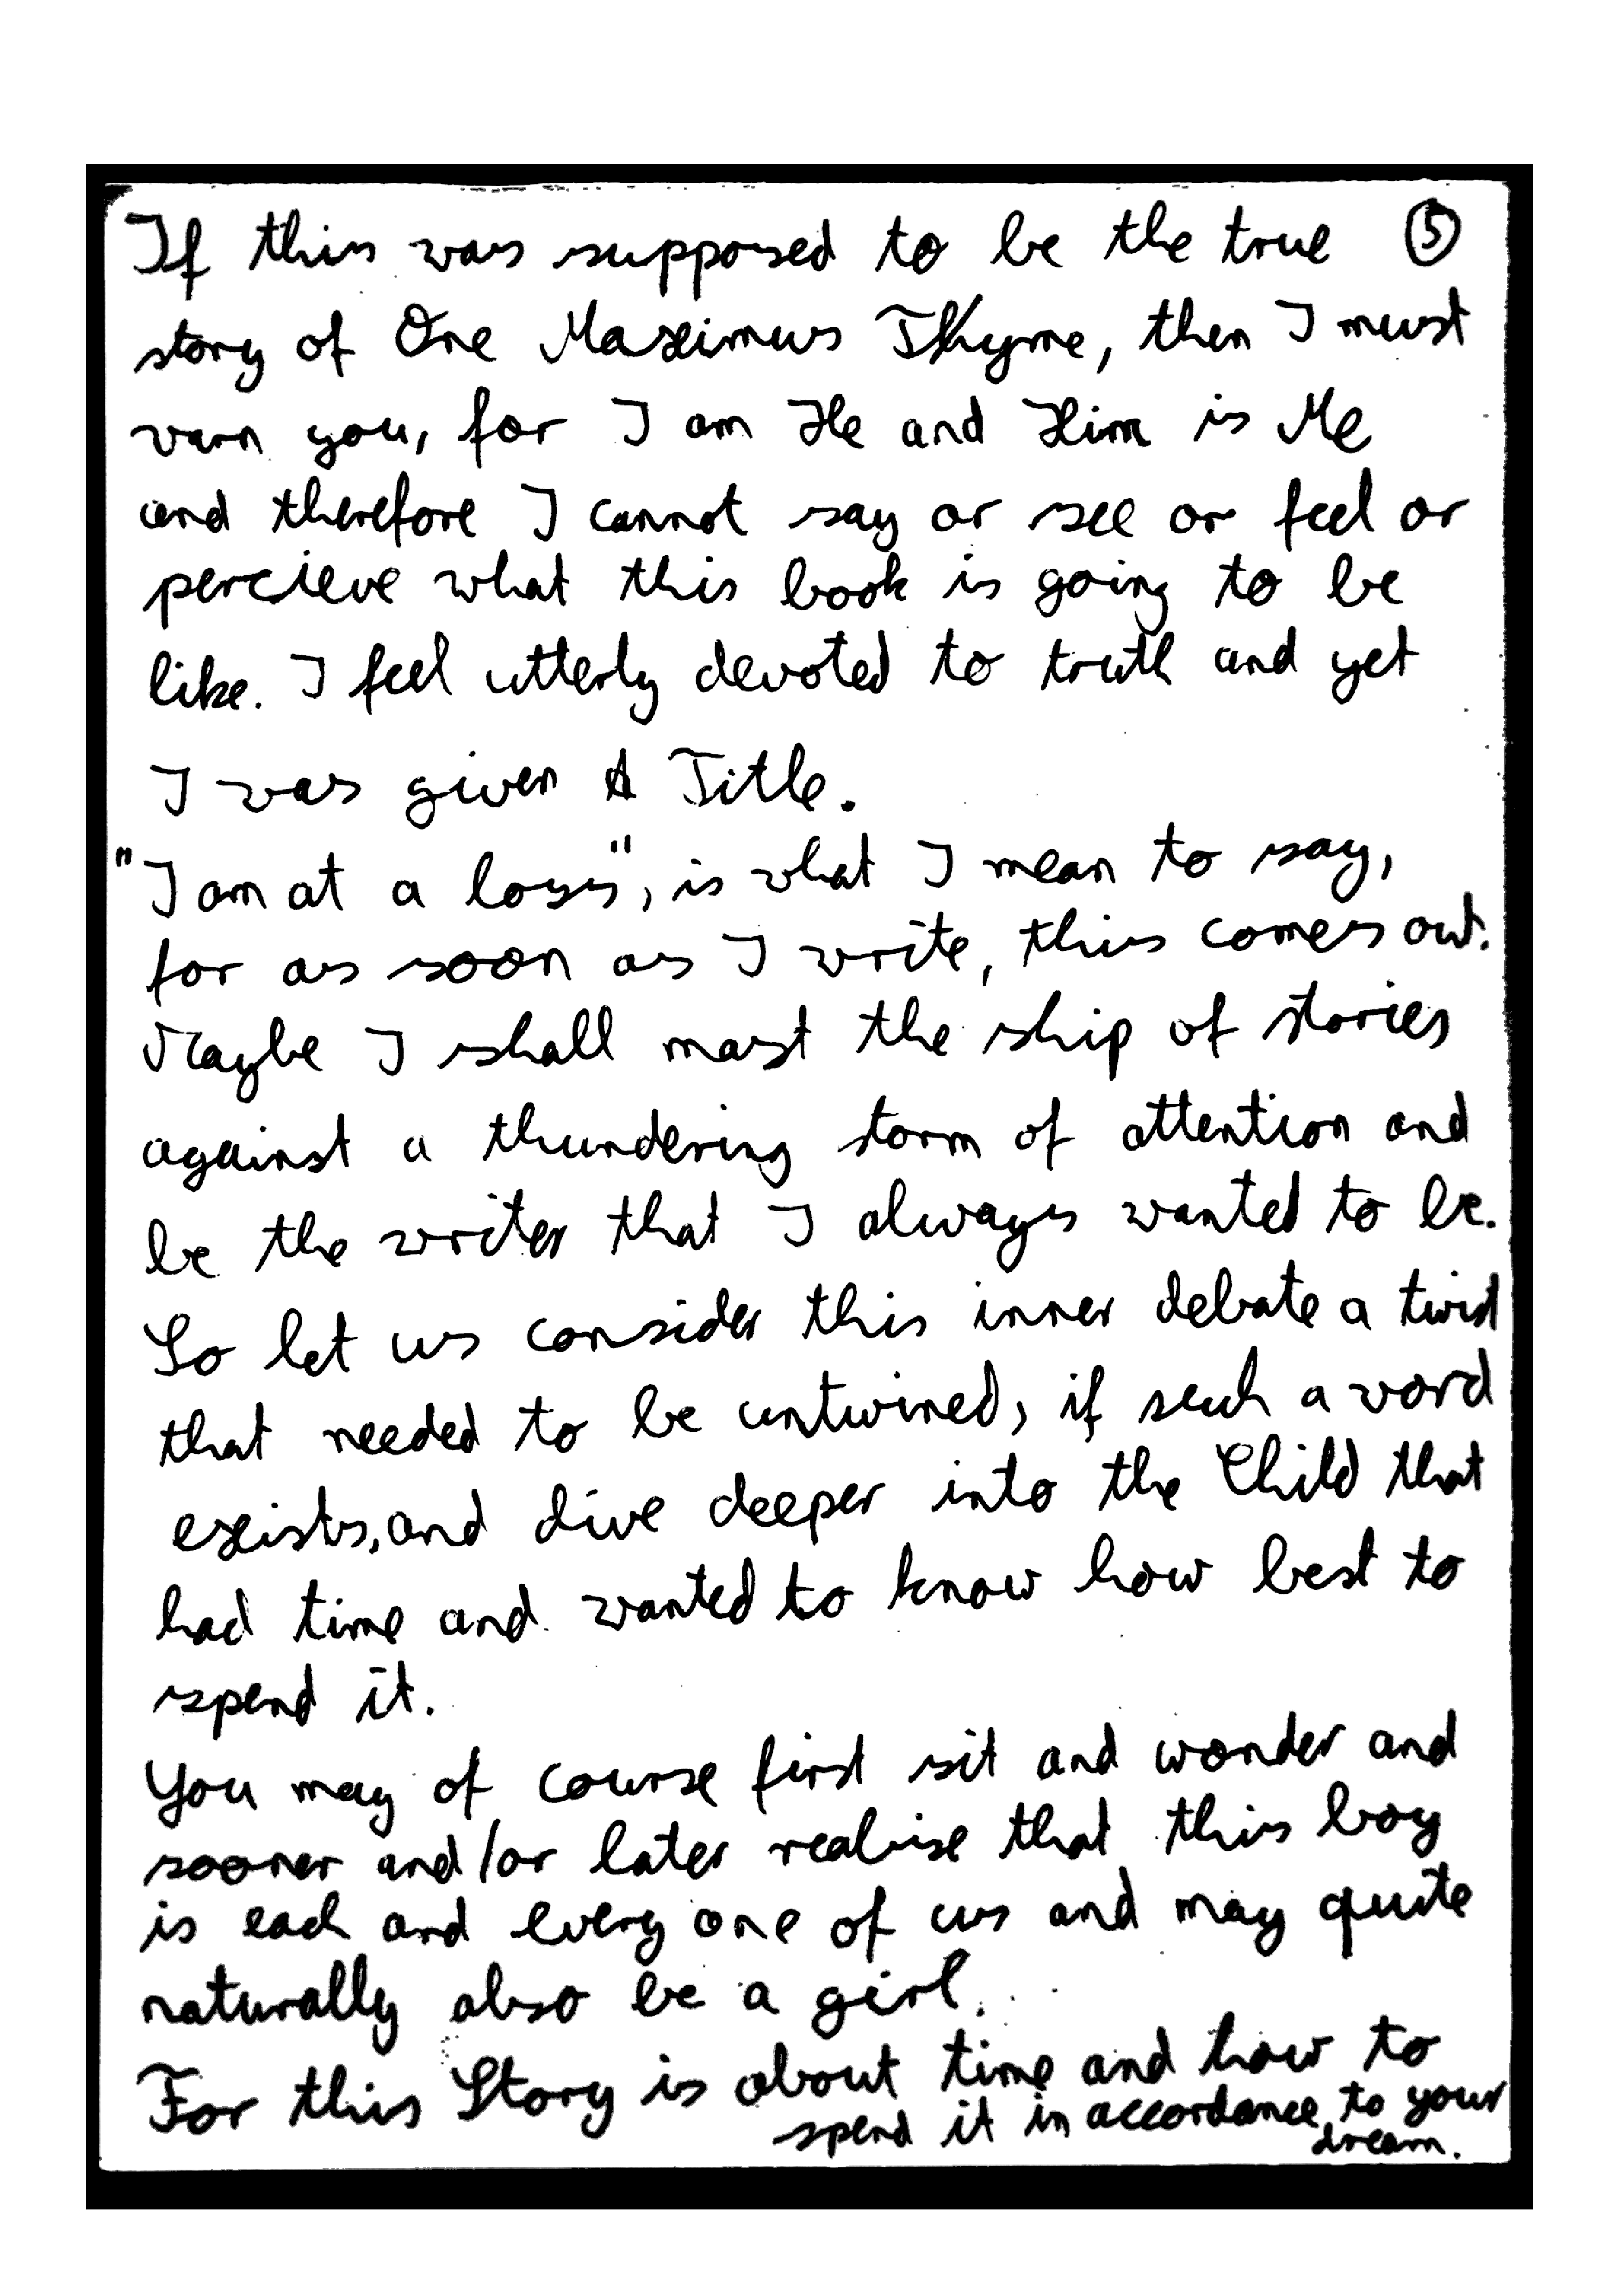 If this was supposed to be the true 5
story of One Maximus Thyme, then I must
warn you, for I am He and Him is Me
and therefore I cannot say or see or feel or
percieve what this book is going to be
like. I feel utterly devoted to truth and yet
I was given A Title.
"I am at a loss", is what I mean to say,
for as soon as I write, this comes out.
Maybe I shall mast the ship of stories
against a thundering storm of attention and
be the writer that I always wanted to be.
So let us consider this inner debate a twist
that needed to be untwined, if such a word
exists, and dive deeper into the Child that
had time and wanted to know how best to
spend it.
You may of course first sit and wonder and
sooner and/or later realise that this boy
is each and every one of us and may quite
naturally also be a girl.
For this Story is about time and how to
spend it in accordance to your
dream.